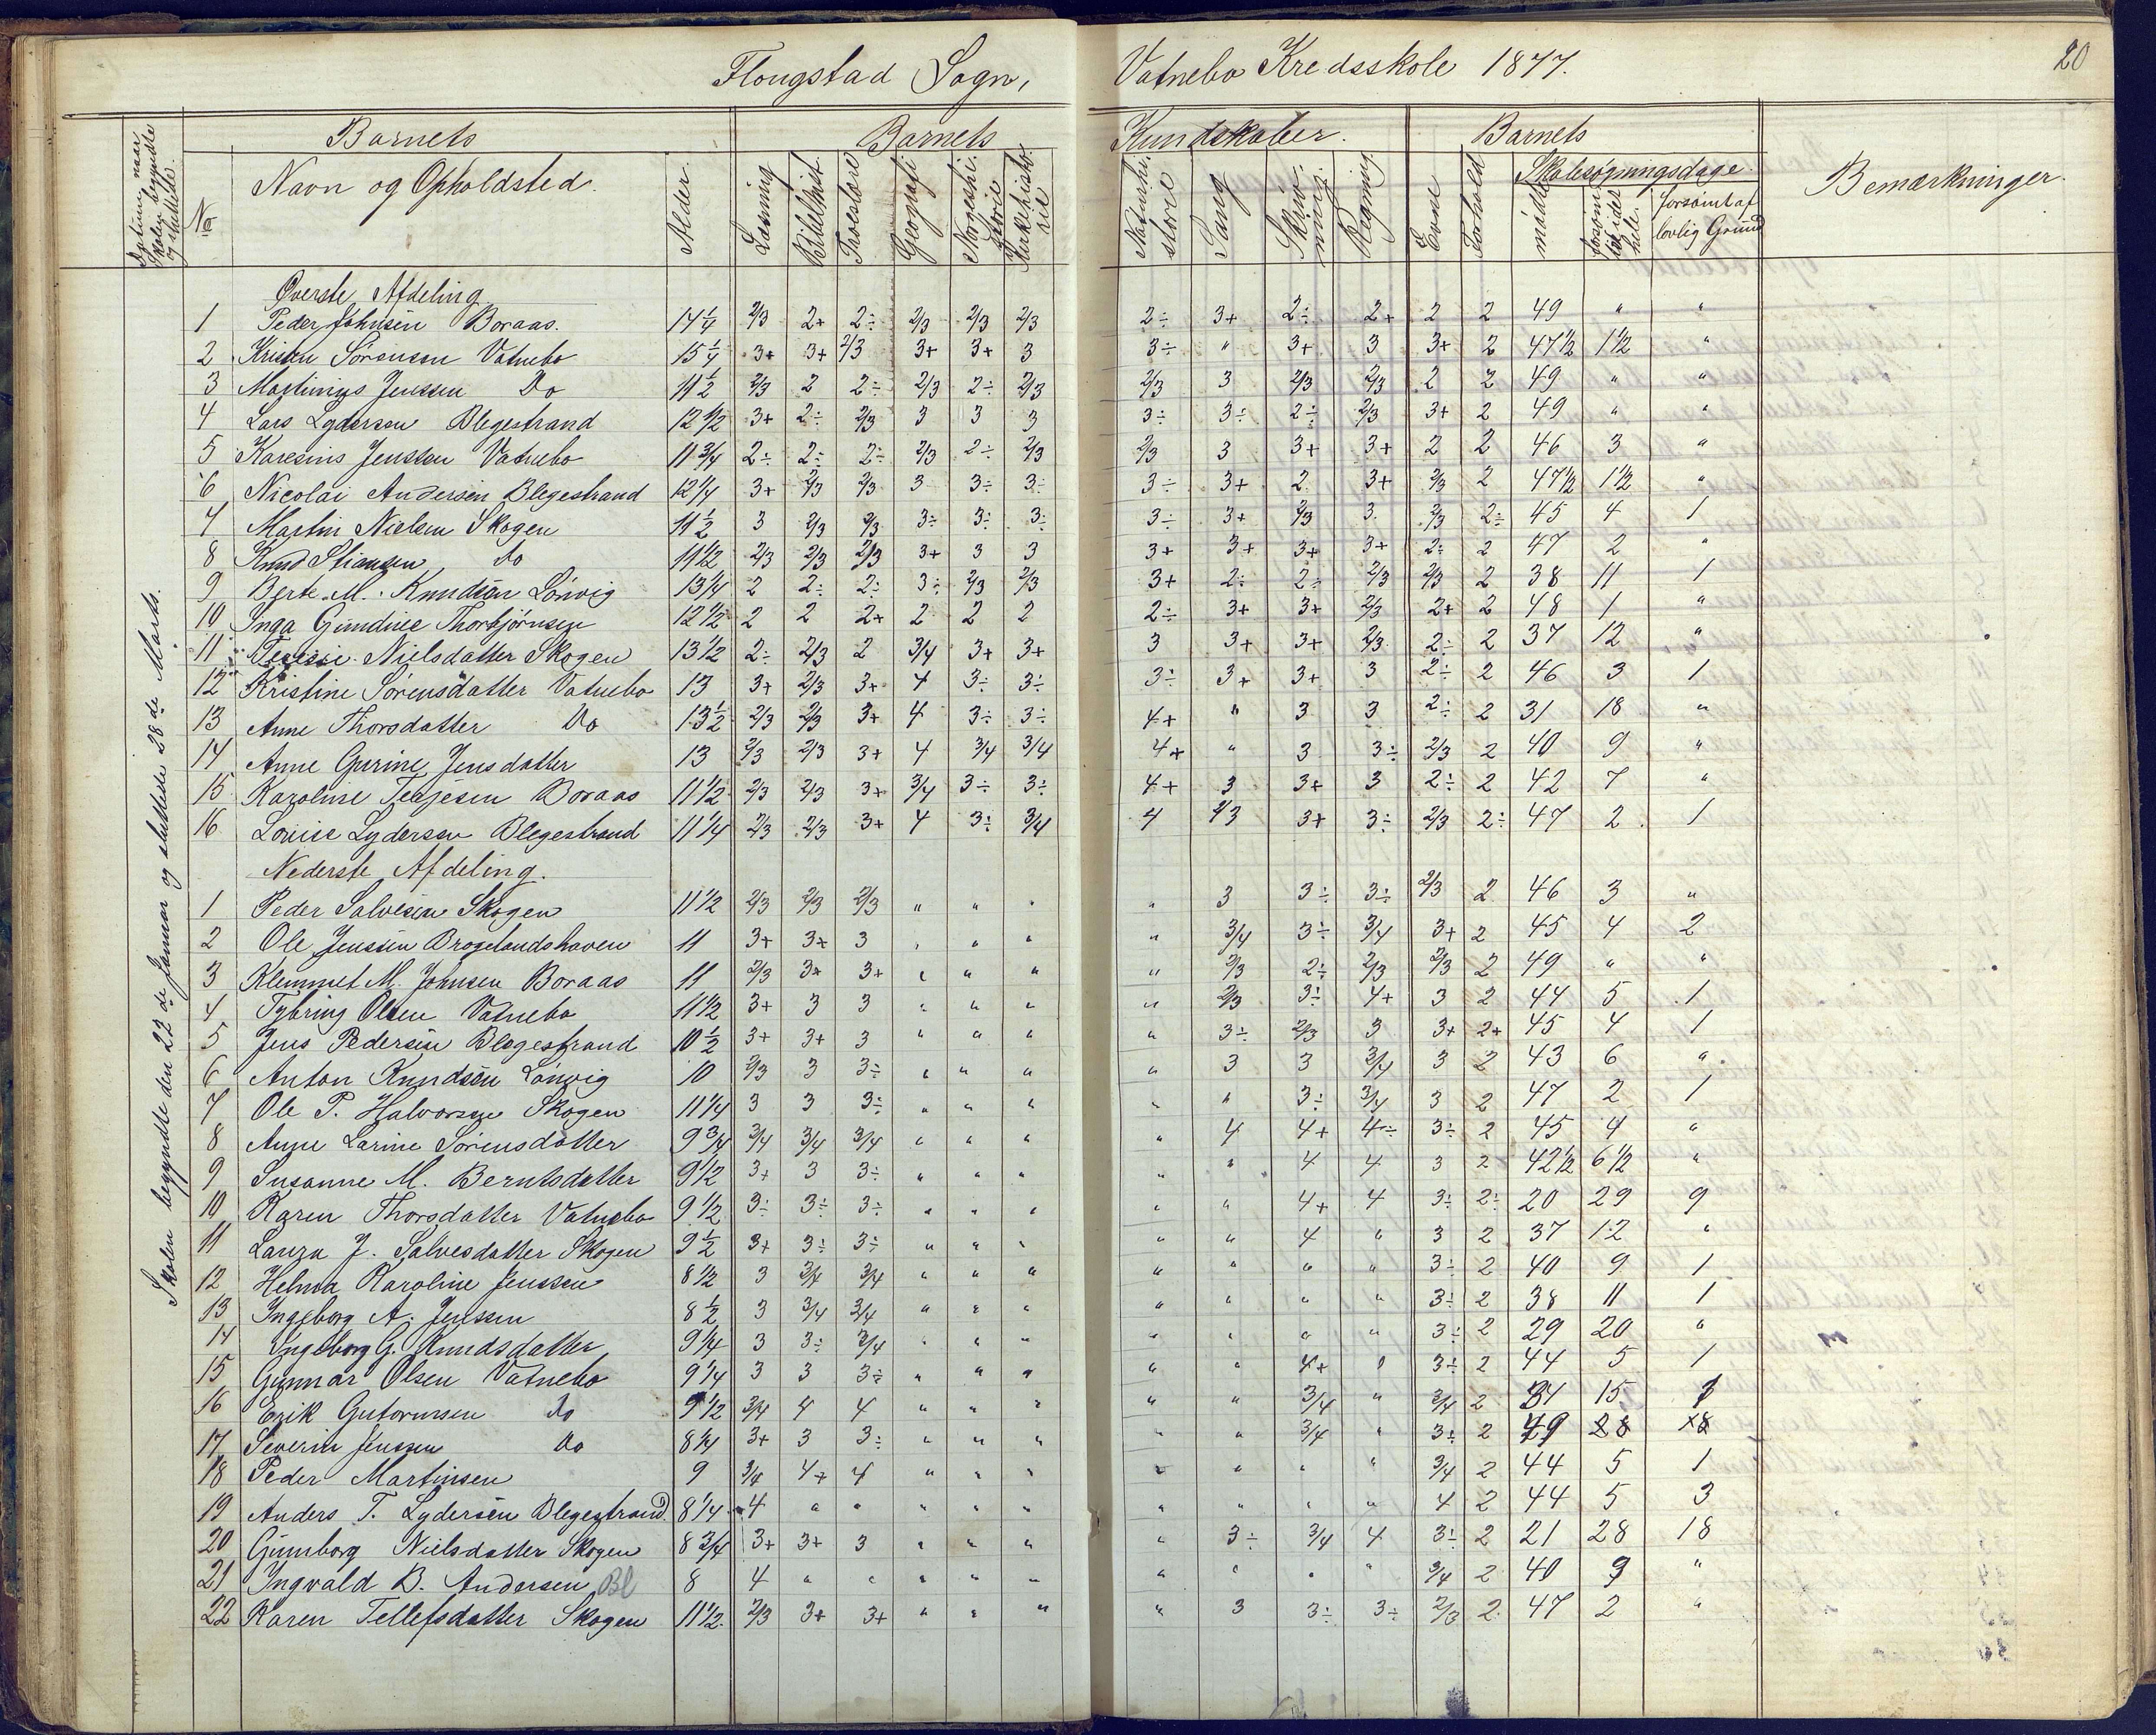 Flougstad Sogn, Vatnebo Kredsskole 1877. 20
Barnets Barnets Kundskaber. Barnets
Skolen begyndte og sluttede.
No Navn og Opholdsted. Alder. Læsning Bibelhist. Troeslære Geografi Norgeshistorie Kirkehistorie Naturhistorie Sang Skrivning. Regning Evne Forhold Skolesøgningsdage. mødte forsømt i det hele. forsømt af lovlig Grund Bemærkninger.
Skolen begyndte den 22de Januar og sluttede 28de Marts.
Øverste Afdeling
1 Peder Johnsen Boraas. 14 1/4 2/3 2+ 2÷ 2/3 2/3 2/3 2÷ 3+ 2÷ 2+ 2 2 49 " "
2 Kristen Sørensen Vatnebo 15 1/4 3+ 3+ 2/3 3+ 3+ 3 3÷ " 3+ 3 3+ 2 47 1/2 1 1/2 "
3 Martinius Jenssen Do 11 1/2 2/3 2 2÷ 2/3 2÷ 2/3 2/3 3 2/3 2/3 2 2 49 " "
4 Lars Lydersen Blegestrand 12 1/2 3+ 2÷ 2/3 3 3 3 3÷ 3÷ 2÷ 2/3 3+ 2 49 " "
5 Karesius Jenssen Vatnebo 11 3/4 2÷ 2÷ 2÷ 2/3 2÷ 2/3 2/3 3 3+ 3+ 2 2 46 3 "
6 Nicolai Andersen Blegestrand 12 1/4 3+ 2/3 2/3 3 3÷ 3÷ 3÷ 3+ 2 3+ 2/3 2 47 1/2 1 1/2 "
7 Martin Nielsen Skogen 11 1/2 3 2/3 2/3 3÷ 3÷ 3÷ 3÷ 3+ 2/3 3 2/3 2÷ 45 4 1
8 Knud Stiansen Do 11 1/2 2/3 2/3 2/3 3+ 3 3 3+ 3+ 3+ 3+ 2÷ 2 47 2 "
9 Berte M. Knudsen Lönvig 13 1/4 2 2÷ 2÷ 3÷ 2/3 2/3 3+ 2÷ 2÷ 2/3 2/3 2 38 11 1
10 Inga Gundine Thorbjørnsen 12 1/2 2 2 2+ 2 2 2 2÷ 3+ 3+ 2/3 2+ 2 48 1 "
11 Nielsdatter Skogen 13 1/2 2÷ 2/3 2 3/4 3+ 3+ 3 3+ 3+ 2/3 2÷ 2 37 12 "
12 Kristine Sørensdatter Vatnebo 13 3+ 2/3 3+ 4 3÷ 3÷ 3÷ 3+ 3+ 3 2÷ 2 46 3 1
13 Anne Thorsdatter Do 13 1/2 2/3 2/3 3+ 4 3÷ 3÷ 4+ " 3 3 2÷ 2 31 18 "
14 Anne Gurine Jensdatter 13 2/3 2/3 3+ 4 3/4 3/4 4+ " 3 3÷ 2/3 2 40 9 "
15 Karoline Tellefsen Boraas 11 1/2 2/3 2/3 3+ 3/4 3÷ 3÷ 4+ 3 3+ 3 2÷ 2 42 7 "
16 Louise Lydersen Blegestrand 11 1/4 2/3 2/3 3+ 4 3÷ 3/4 4 2/3 3+ 3÷ 2/3 2÷ 47 2 1
Nederste Afdeling.
1 Peder Salvesen Skogen 11 1/2 2/3 2/3 2/3 " " " " 3 3÷ 3÷ 2/3 2 46 3 "
2 Ole Jenssen Brogelandshaven 11 3+ 3+ 3 " " " " 3/4 3÷ 3/4 3+ 2 45 4 2
3 Klemmet M. Johnsen Boraas 11 2/3 3+ 3+ " " " " 2/3 2÷ 2/3 2/3 2 49 " "
4 Tybring Olsen Vatnebo 11 1/2 3+ 3 3 " " " " 2/3 3÷ 4+ 3 2 44 5 1
5 Jens Pedersen Blegestrand 10 1/2 3+ 3+ 3 " " " " 3÷ 2/3 3 3+ 2+ 45 4 1
6 Anton Knudsen Lönvig 10 2/3 3 3÷ " " " " 3 3 3/4 3 2 43 6 "
7 Ole P. Halvorsen Skogen 11 1/4 3 3 3÷ " " " " " 3÷ 3/4 3 2 47 2 1
8 Anne Larine Sørensdatter 9 3/4 3/4 3/4 3/4 " " " " 4 4+ 4÷ 3÷ 2 45 4 "
9 Susanne M. Berntsdatter 9 1/2 3+ 3 3÷ " " " " " 4 4 3 2 42 1/2 6 1/2 "
10 Karen Thorsdatter Vatnebo 9 1/2 3÷ 3÷ 3÷ " " " " " 4+ 4 3÷ 2÷ 20 29 9
11 Laura J. Salvesdatter Skogen 9 1/2 3+ 3÷ 3÷ " " " " " 4 " 3 2 37 12 "
12 Helma Karoline Jenssen 8 1/2 3 3/4 3/4 " " " " " " " 3÷ 2 40 9 1
13 Ingeborg A. Jenssen 8 1/2 3 3/4 3/4 " " " " " " " 3÷ 2 38 11 1
14 Ingeborg G. Knudsdatter 9 1/4 3 3÷ 3/4 " " " " " " " 3÷ 2 29 20 "
15 Gunnar Olsen Vatnebo 9 1/4 3 3 3÷ " " " " " 4+ " 3÷ 2 44 5 1
16 Erik Gutormsen Do 9 1/2 3/4 4 4 " " " " " 3/4 " 3/4 2 34 15 1
17 Severin Jenssen Do 8 1/4 3+ 3 3÷ " " " " " 3/4 " 3÷ 2
18 Peder Martinsen 9 3/4 4+ 4 " " " " " " " 3/4 2 44 5 1
19 Anders T. Lydersen Blegestrand 8 1/4 4 " " " " " " " " " 4 2 44 5 3
20 Gunborg Nielsdatter Skogen 8 3/4 3+ 3+ 3 " " " " 3÷ 3/4 4 3÷ 2 21 28 18
21 Ingvald B. Andersen Bl 8 4 " " " " " " " " " 3/4 2 40 9 "
22 Karen Tellefsdatter Skogen 11 1/2 2/3 3+ 3+ " " " " 3 3÷ 3÷ 2/3 2 47 2 "